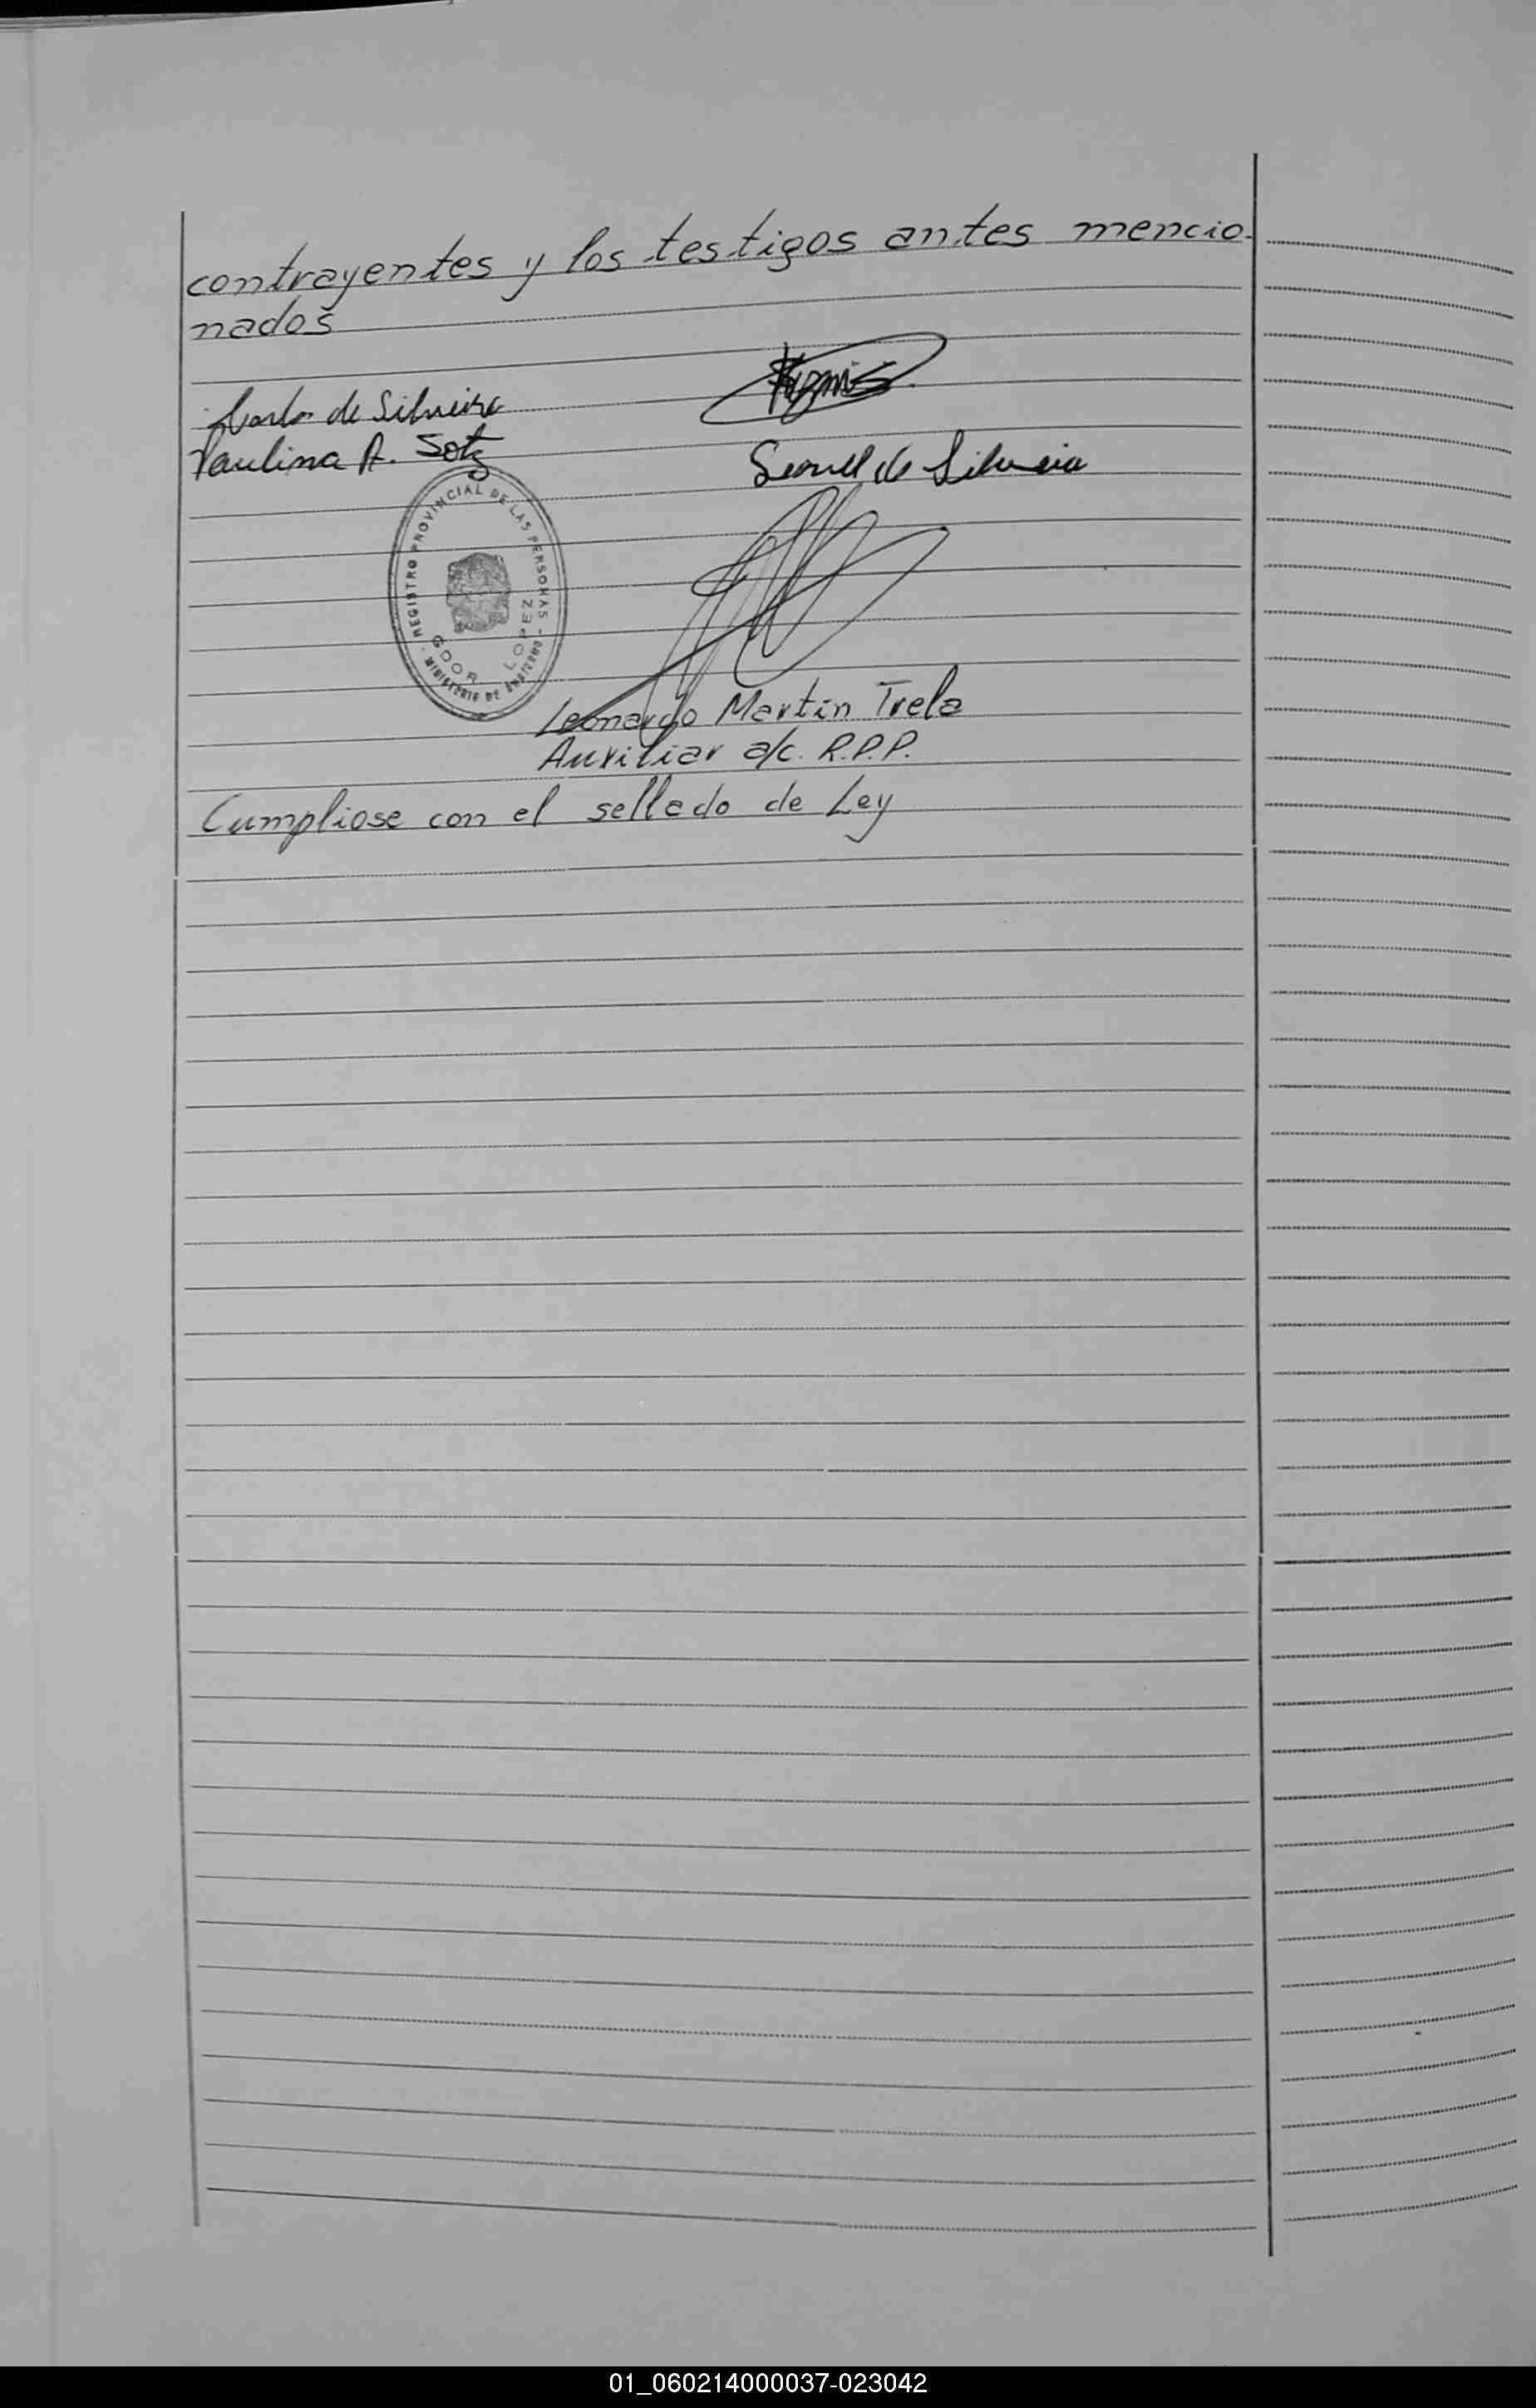 contrayentes y los testigos antes mencio-
nados
Carlos de Silveira
Paulina A. Sotz
Leonel de Silveira
REGISTRO PROVINCIAL DE LAS PERSONAS
GDOR LOPEZ
MINISTERIO DE GOBIERNO
Leonardo Martin Trela
Auxiliar a/c. R.P.P.
Cumpliose con el sellado de Ley
01_060214000037-023042